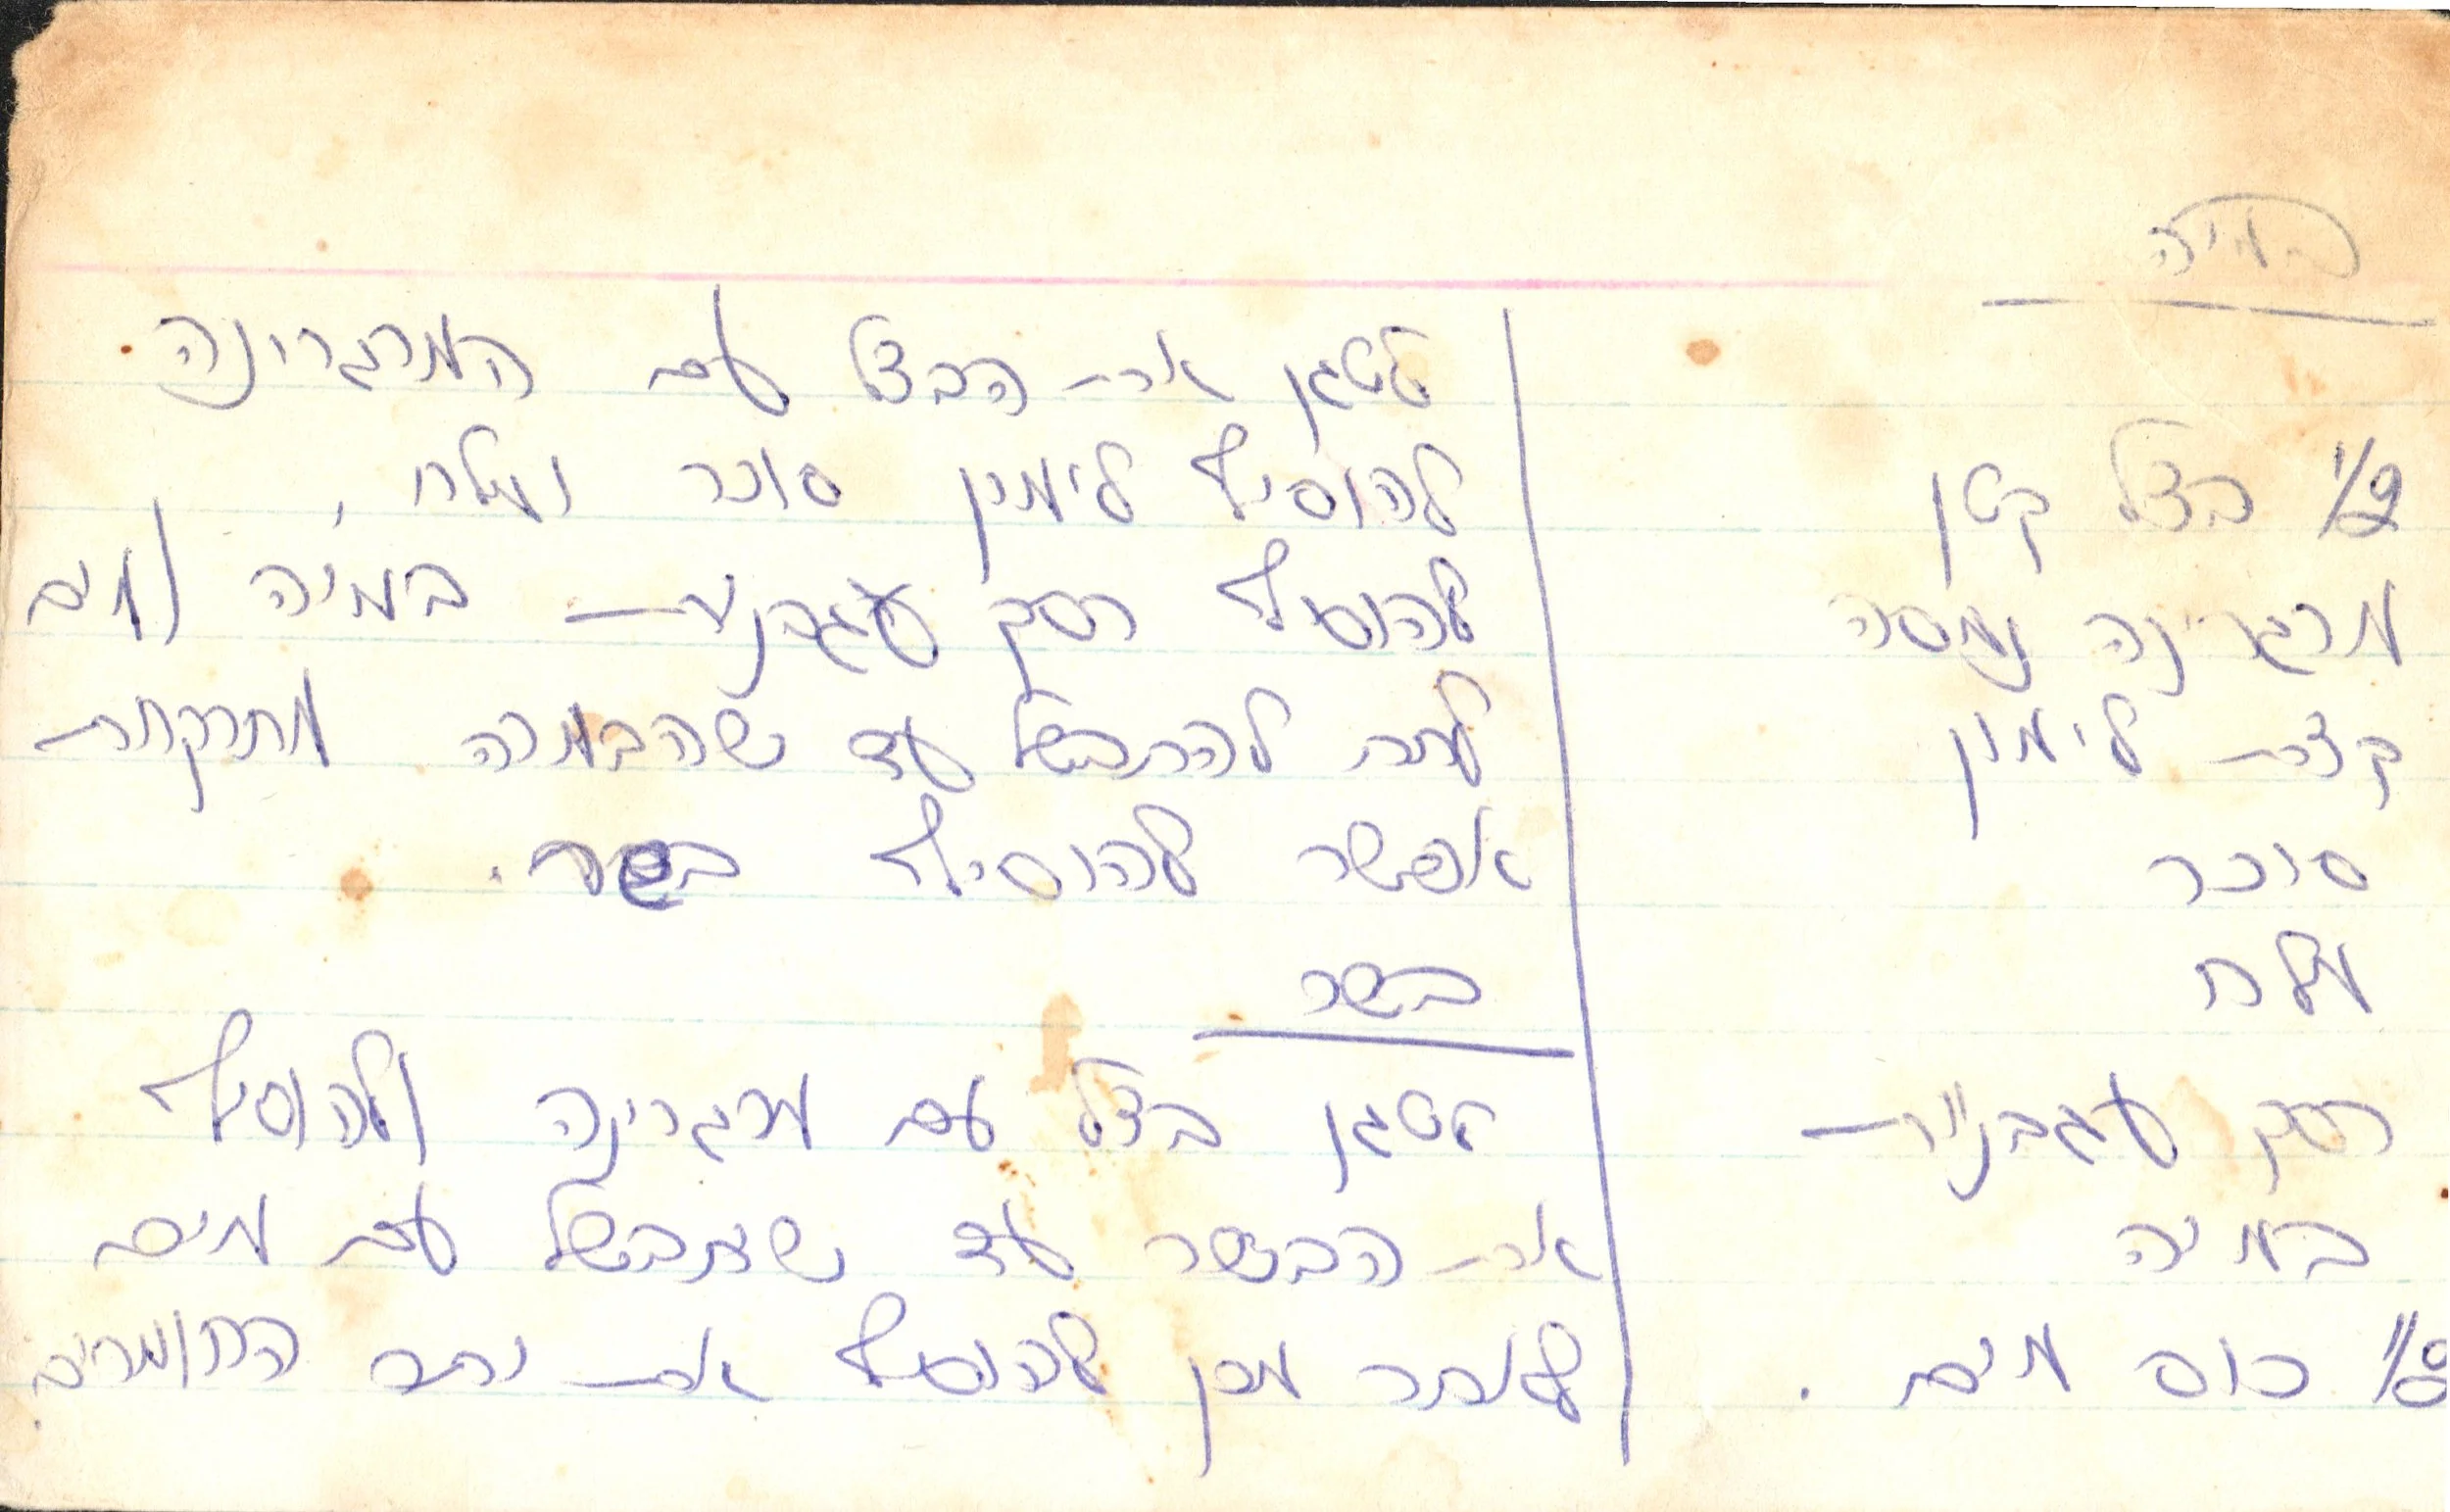 במיה
1/2 בצל קטן
מרגרינה נמסה
קצת לימון
סוכר
מלח
רסק עגבניות
במיה
1/8 כוס מים.
לטגן את הבצל עם המרגרינה
להוסיף לימון סוכר ומלח,
להוסיף רסק עגבניות במיה ומים
לתת להתבשל עד שהבמיה מתרככת
אפשר להוסיף בשר.
בשר
לטגן בצל עם מרגרינה ולהוסיף
את הבשר עד שיתבשל עם מים
לאחר מכן להוסיף את יתר החומרים.